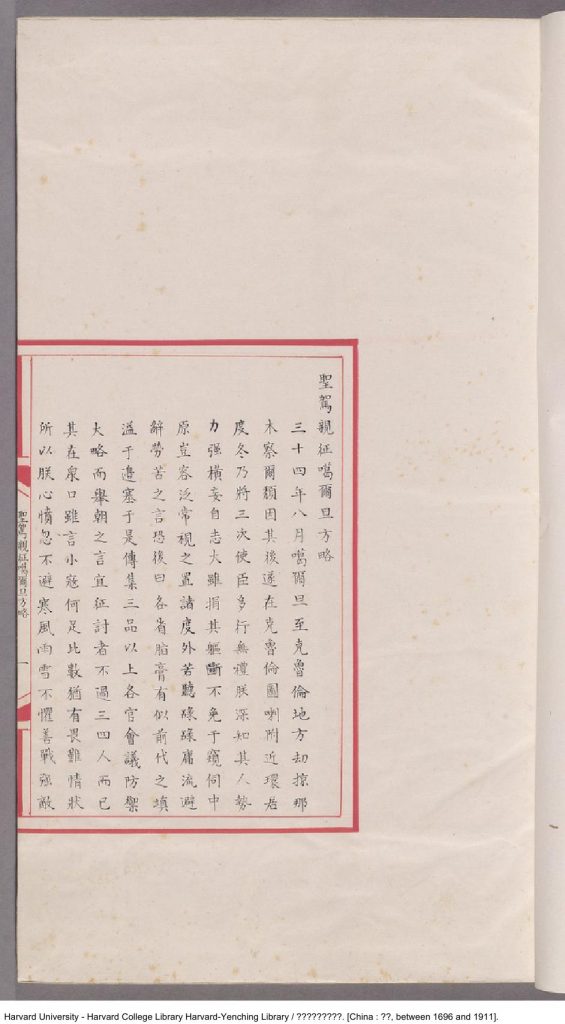 聖駕親征噶爾旦方略
三十四年八月噶爾旦至克魯倫地方劫掠那
木察爾頹因其後遂在克魯倫圖喇附近環居
度冬乃將三次使臣多行無禮朕深知其人勢
力强橫妄自志大雖捐其軀斷不免于窺伺中
原豈容泛常視之置諸度外若聽碌碌庸流避
辭勞苦之言恐後日各省脂膏有似前代之填
溢于邊塞于是傳集三品以上各官會議防禦
大略而舉朝之言宜征討者不過三四人而已
其在衆口雖言小寇何足比數猶有畏難情狀
所以朕心憤忽不避寒風雨雪不懼善戰强敵
聖駕親征噶爾旦方略
一
Harvard University - Harvard College Library Harvard-Yenching Library / ?????????. [China : ??, between 1696 and 1911].